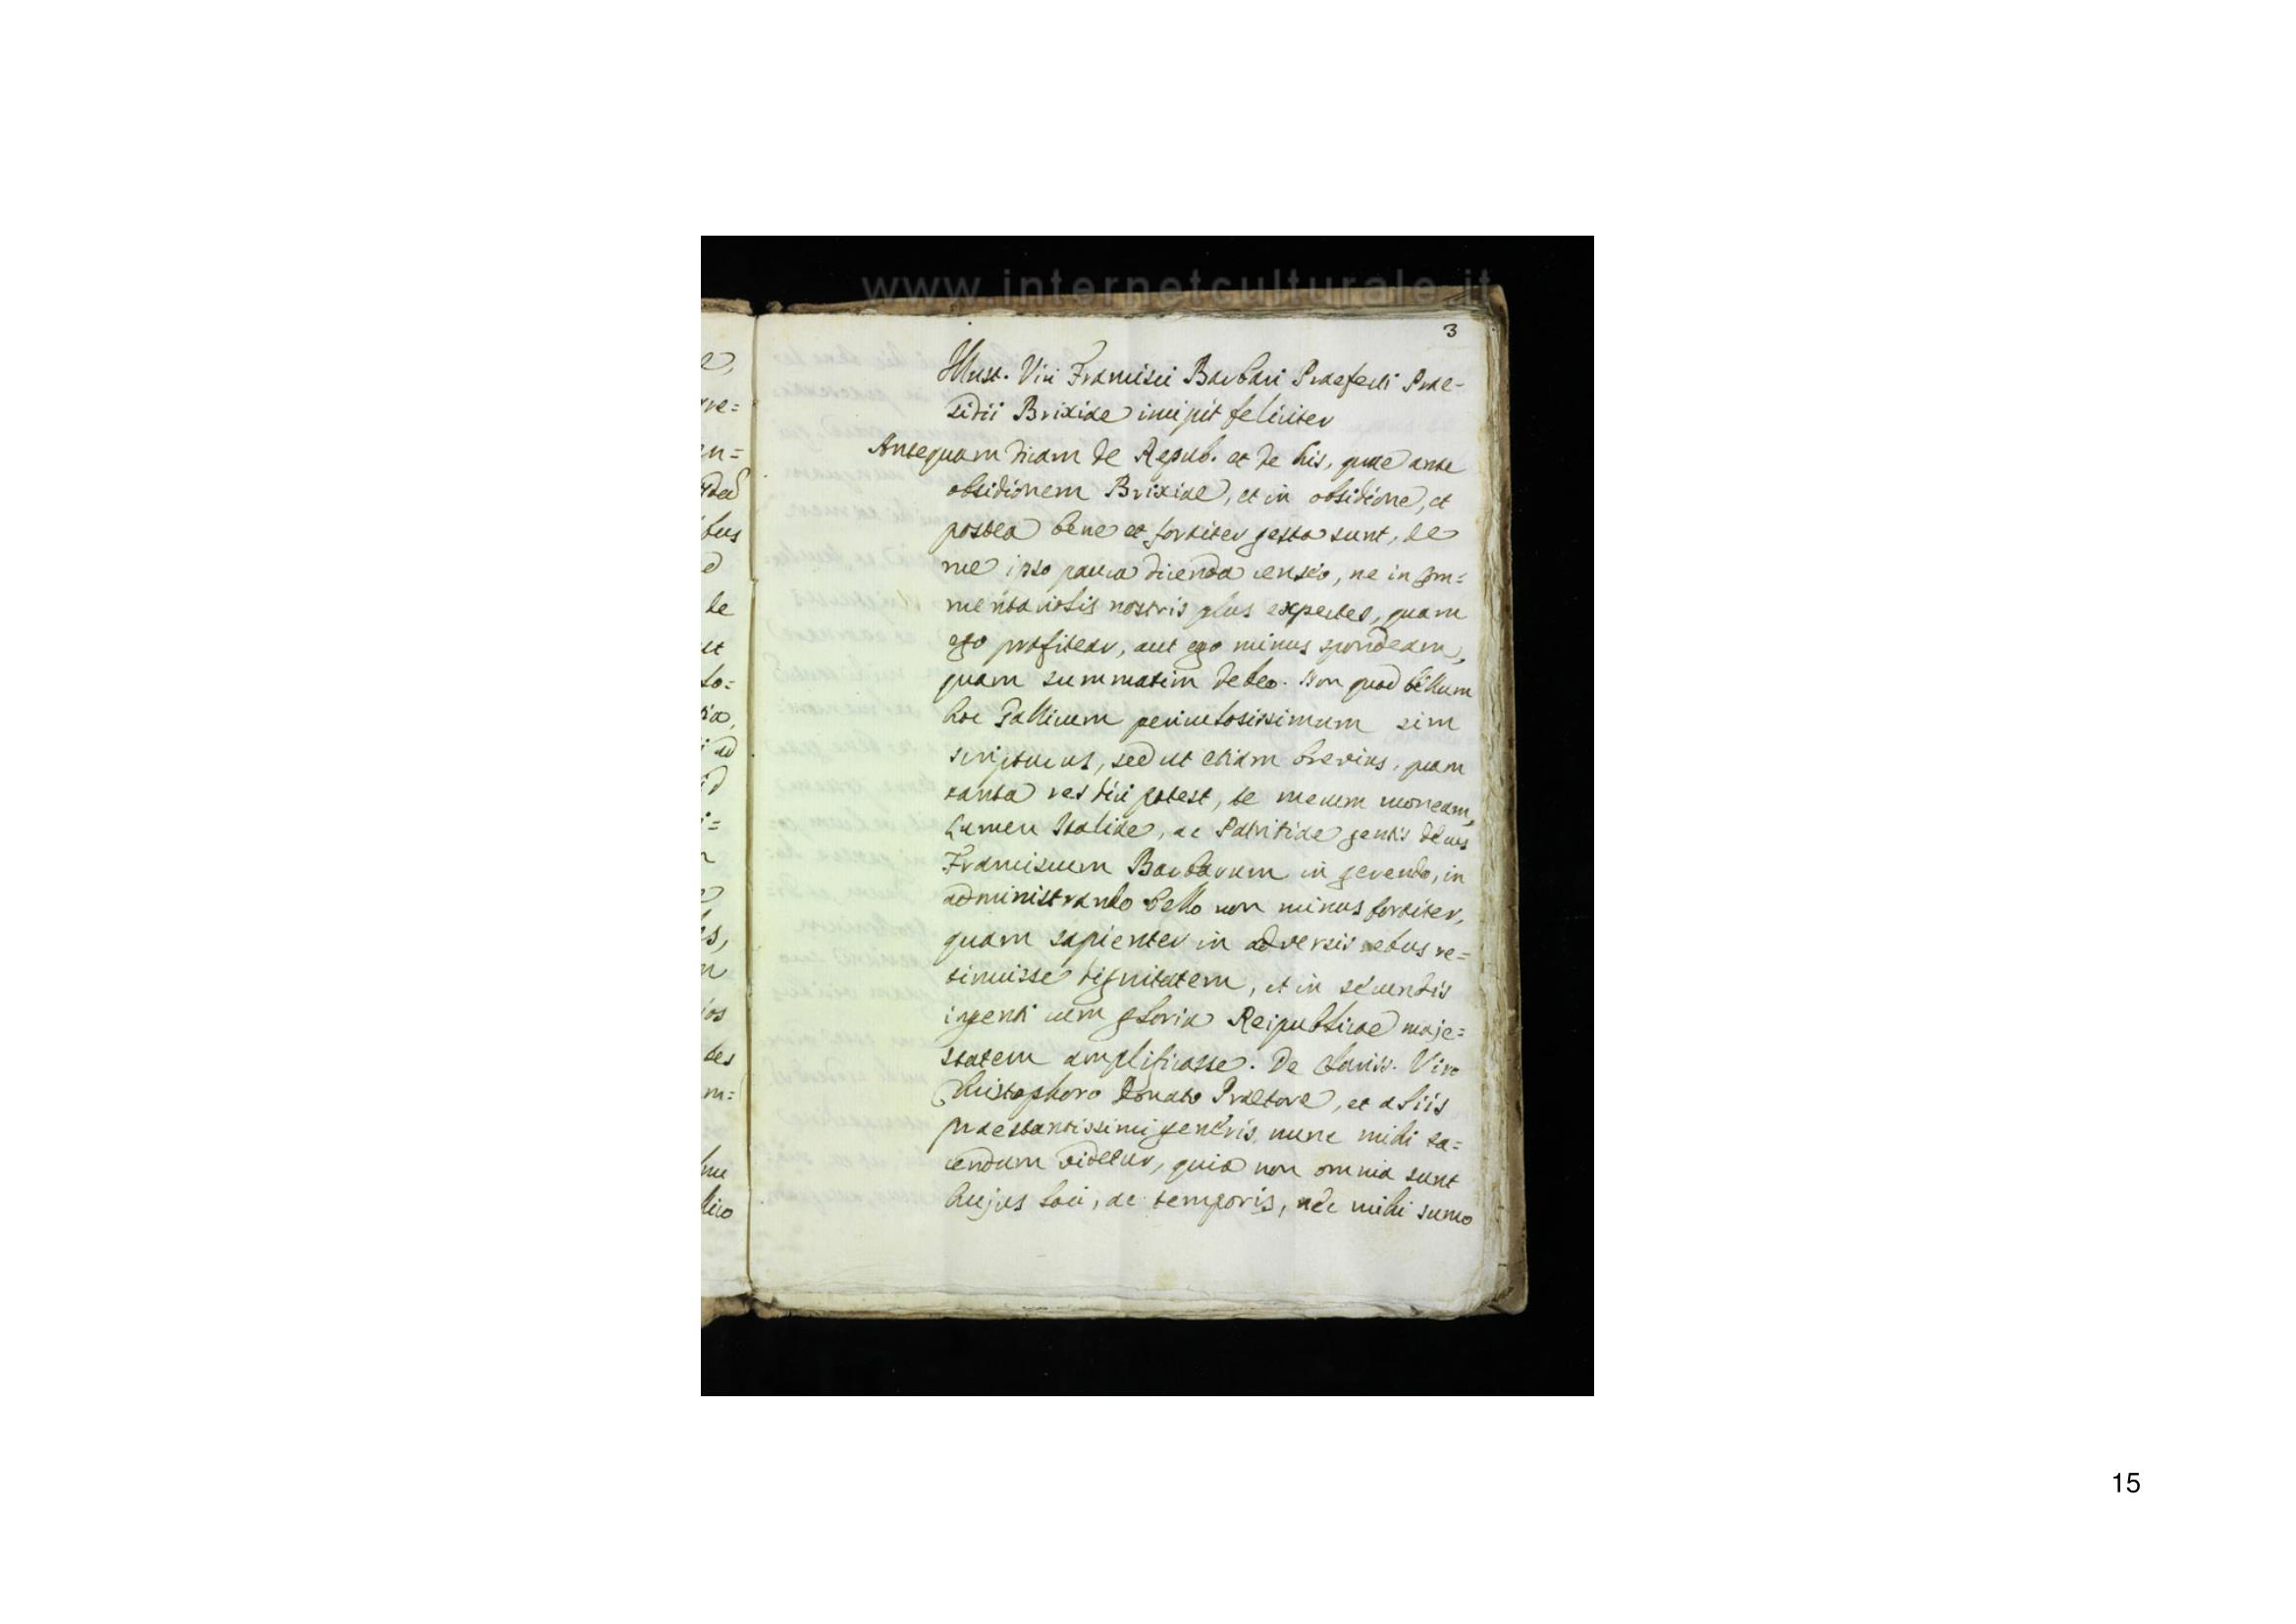 www.internetculturale.it
3
Illust. Viri Francisci Barbari Praefecti Prae-
sidii Brixiae incipit feliciter
Antequam dicam de Repub. et de his, quae ante
obsidionem Brixiae, et in obsidione, et
postea bene et fortiter gesta sunt, de
me ipso pauca dicenda censeo, ne in Com=
mentariolis nostris plus expectes, quam
ego profitear, aut ego minus spondeam,
quam summatim debeo. Non quod bellum
hoc Gallicum periculosissimum sim
scripturus, sed ut etiam brevius, quam
tanta res dici potest, te mecum moneam,
Lumen Italiae, ac Patritiae gentis decus
Franciscum Barbarum in gerendo, in
administrando bello non minus fortiter,
quam sapienter in adversis rebus re=
tinuisse dignitatem, et in secundis
ingenti cum gloria Reipublicae maje=
statem amplificasse. De Clariss. Viro
Christophoro Donato Praetore, et aliis
praestantissimi generis, nunc mihi ta=
cendum videtur, quia non omnia sunt
hujus loci, ac temporis, nec mihi sumo
e,
re=
en=
bus
de
ut
to=
ia,
i ad
id
i=
n
es,
n
ios
des
m=
lico
15